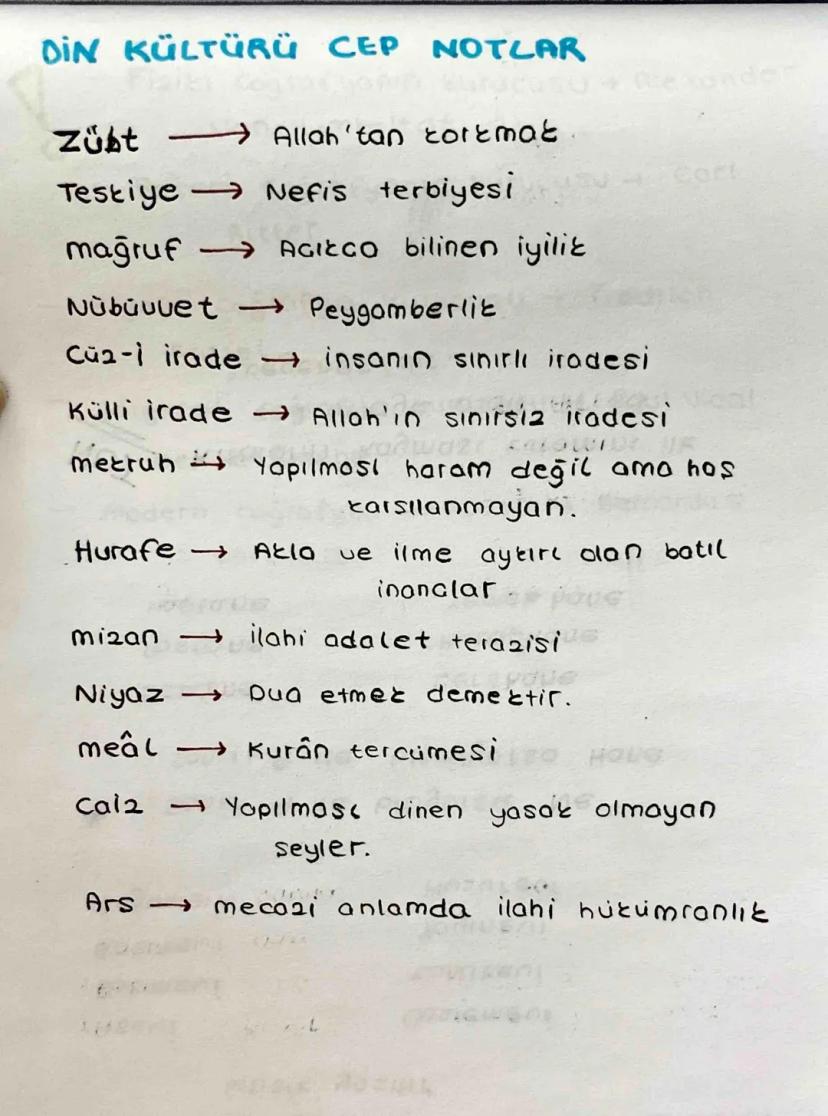 DİN KÜLTÜRÜ CEP NOTLAR
Zübt → Allah'tan korkmak.
Teskiye → Nefis terbiyesi
mağruf → Acıkca bilinen iyilik
Nübüvvet → Peygamberlik
Cüz-İ irade → insanın sınırlı iradesi
Külli irade → Allah'ın sınırsız iradesi
mekruh → Yapılması haram değil ama hoş
karsılanmayan.
Hurafe → Akla ve ilme aykırı olan batıl
inanclar.
mizan → ilahi adalet terazisi
Niyaz → Dua etmek demektir.
meâl → Kurân tercümesi
Caiz → Yapılması dinen yasak olmayan
seyler.
Ars → mecazi anlamda ilahi hükümranlık